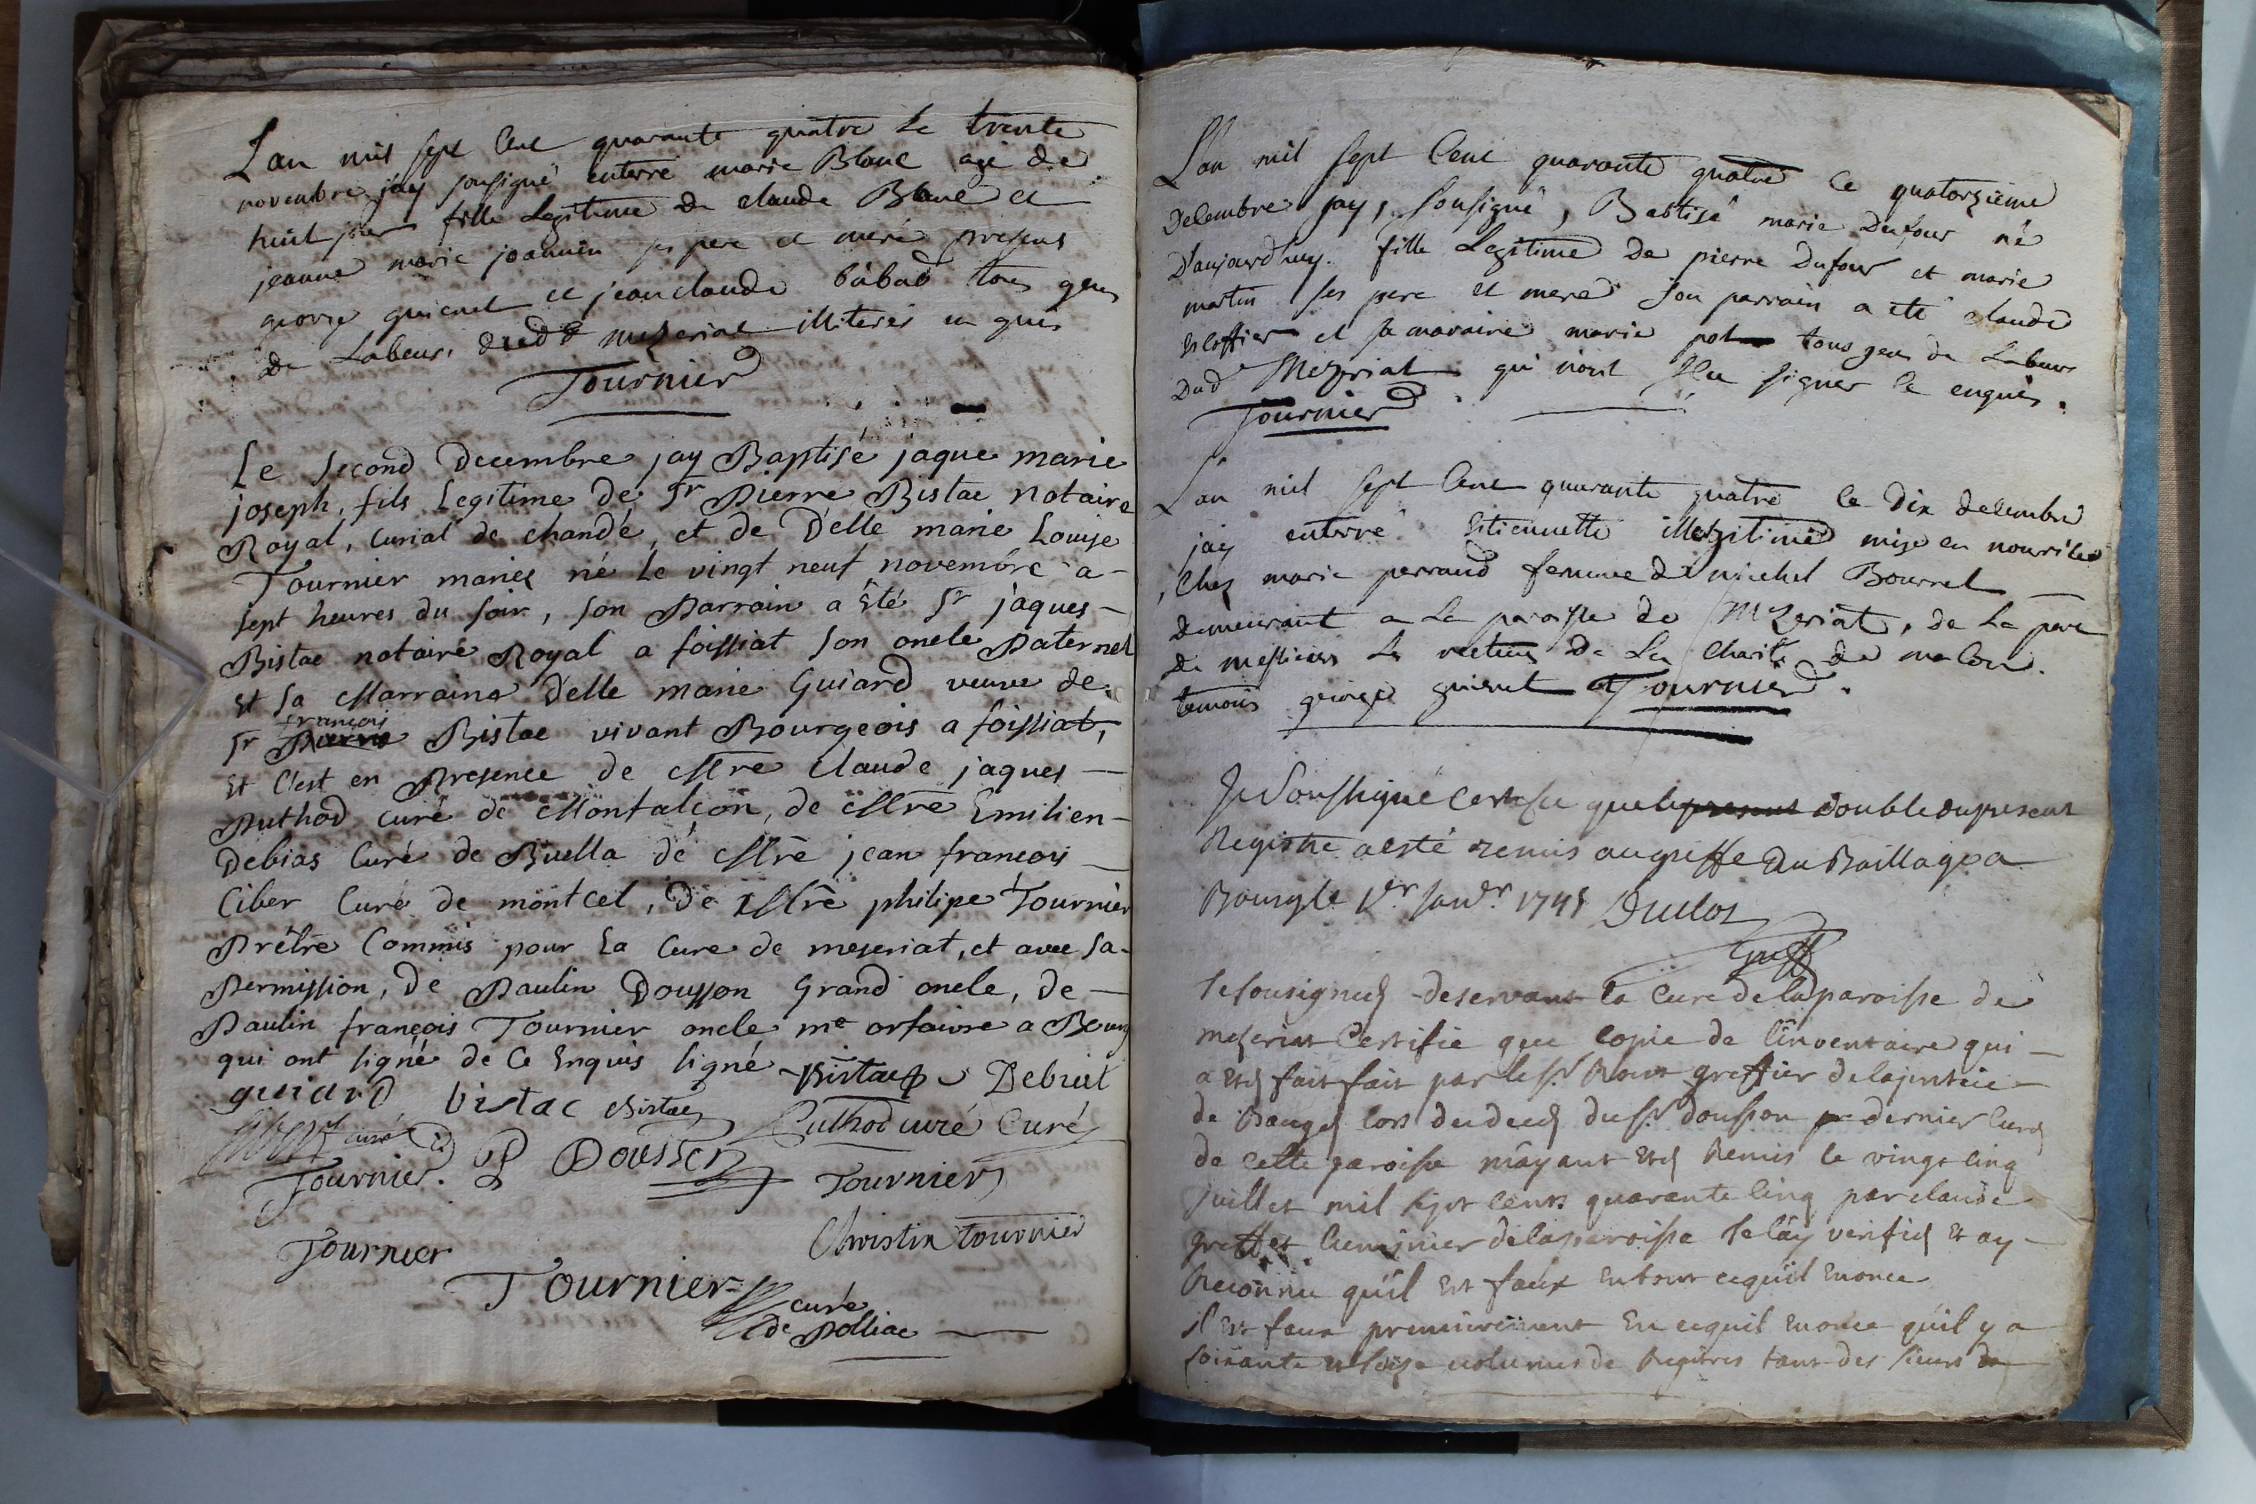 L'an mil sept Cent quarante quatre Le trente
novembre j'ay sousigné enterré marie Blanc agé de
huit jour fille Legitime de claude Blanc et
jeanne marie joannin ses pere et mere presens
george guienet et jean claude babad tous gens
de Labeur, dud mezeriat illiterés en quis
Tournier
Le second Decembre jay Baptisé jaque marie
joseph, fils Legitime de Sr Pierre Bistac notaire
Royal, Curial de chandé, et de D'elle marie Louise
Tournier mariés né le vingt neuf novembre a -
sept heures du soir, son Parrain a été Sr jaques -
Bistac notaire Royal a foissiat son oncle Paternel
et sa Marraine D'elle marie Guiard veuve de
françois
Sr Pierre Bistac vivant Bourgeois a foissiat,
et c'est en Presence de Mre Claude jaques -
Puthod curé de Montalcon, de Mre Emilien -
Debias Curé de Buella de Mre jean françois -
Ciber Curé de montcel, De Mre philipe Tournier
Prêtre Commis pour la Cure de meseriat, et avec sa -
Permission, de Paulin Dousson Grand oncle, de -
Paulin françois Tournier oncle me orfaivre a Bourg
qui ont signé de Ce Enquis signé Bistac Debiat
guiard bistac Bistac Puthod curé Curé
curé
Tournier. P Dousson Tournier
Tournier Christin tournier
Tournier
curé
de Polliac
L'an mil sept Cent quarante quatre le quatorzieme
Decembre jay, sousigné, Babtisé marie Dufour né
D'aujourd'huy. fille Legitime De pierre Dufour et marie
martin ses pere et mere son parrain a été claude
et sa maraine marie tous gens de Labeur
Dud Mezeriat qui n'ont sceu signer de enquis.
Tournier
L'an mil sept Cent quarante quatre le Dix decembre
jay enterré Etiennette illegitime mise en nourice
, Chez marie perraud femme de michel Bourrel
demeurant a La paroisse de Mezeriat, de La part
de messieurs Les recteurs De La Charité de macon.
temoins george guienet et Tournier.
Je Soussigné Certifie que le present double du present
Registre a esté remis au greffe Du Baillage a
Bourg le 1er Janvr. 1745 Duclos
Greff
Je sousigned deservant la Cure de lad paroisse de
meseriat Certifie que copie de l'inventaire qui -
a eté fait fait par le Sr greffier de la justice -
de Baugé lors du deces du Sr dousson dernier Curé
de cette paroisse m'ayant eté Remis le vingt cinq
juillet mil sept cents quarante cinq par claude
greffet luminier de la paroisse Je l'ay verifié et ay -
Reconnu qu'il est faux en tout ce qu'il enonce
il est faux premierement En ce qu'il enonce qu'il y a
soixante et seize volumes de Registres tant des sieurs de